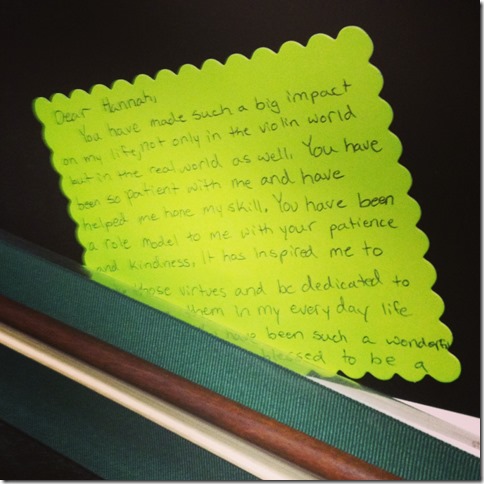 Dear Hannah,
You have made such a big impact
on my life, not only in the violin world
but in the real world as well. You have
been so patient with me and have
helped me hone my skill. You have been
a role model to me with your patience
and kindness. It has inspired me to
those virtues and be dedicated to
them in my every day life
have been such a wonderful
blessed to be a